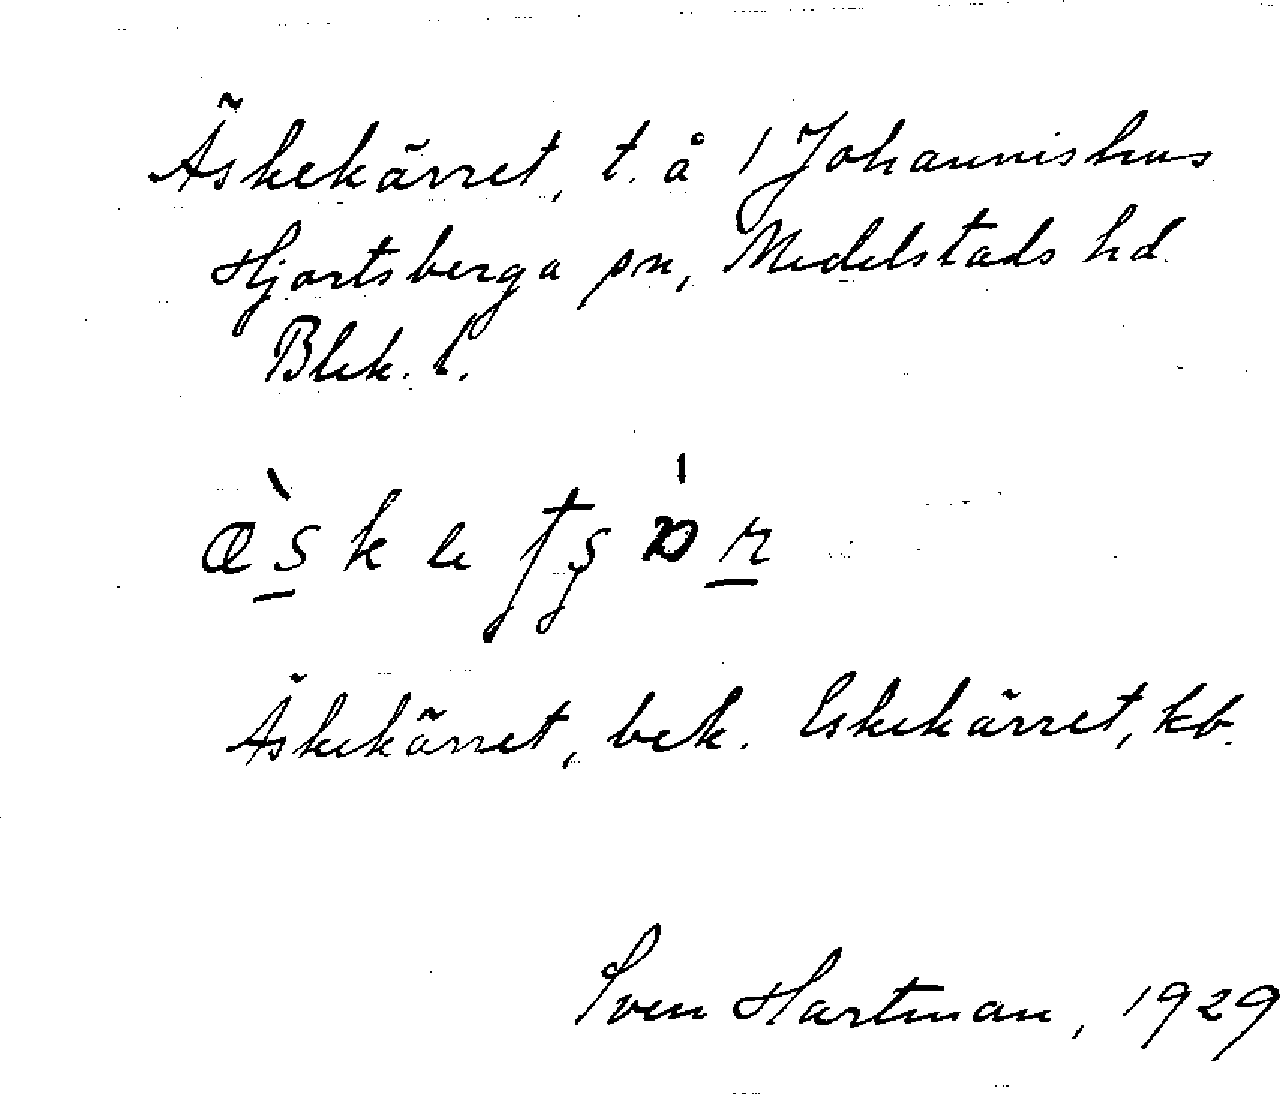 Äskekärret, t. å 1 Johannishus
Hjortsberga sn, Medelstads hd.
Blek. l.
Äskekärret, bek. Eskekärret, kb.
Sven Hartman, 1929